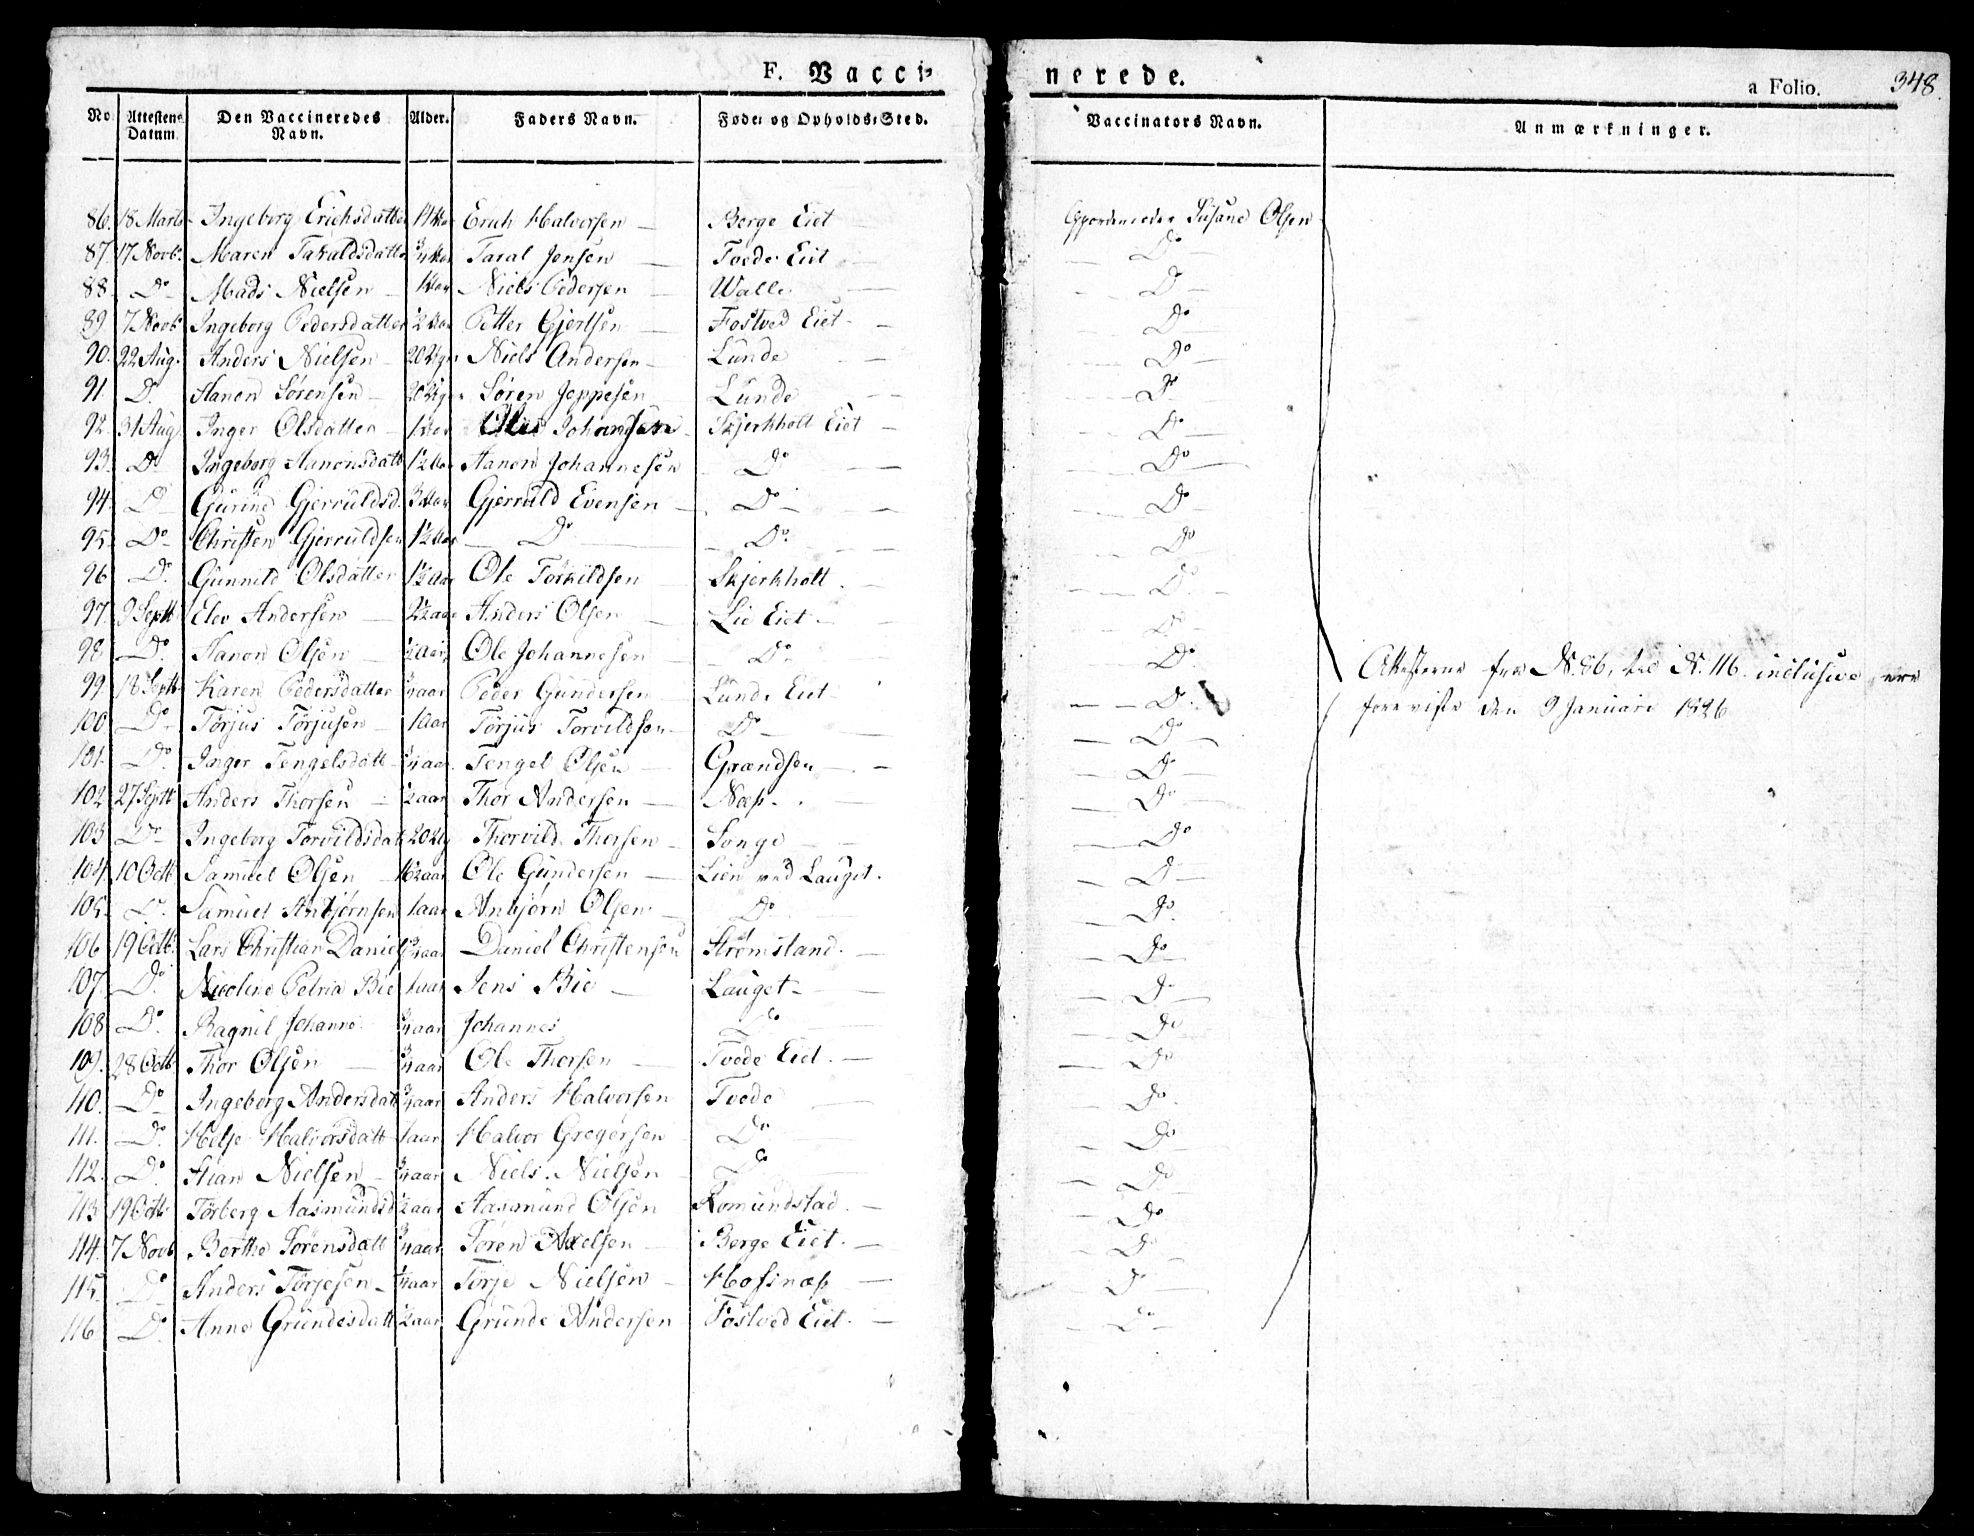 F. Vacci-
nerede.
a Folio. 348.
No Attestens Datum. Den Vaccineredes Navn. Alder. Faders Navn. Føde- og Opholds-Sted. Vaccinators Navn. Anmærkninger.
86. 18 Marts Ingeborg Erichsdatter Erich Halvorsen Berge Eiet Susane Olsen
87. 17 Novbr. Maren Taraldsdatter 3/4 Aar Taral Jensen Tvede Eiet Do
88. Do Mads Nielsen 1 Aar Niels Pedersen Walle Do
89. 7 Novbr Ingeborg Pedersdatter 1/2 Aar Petter Gjertsen Fostved Eiet Do
90. 22 Aug. Anders Nielsen 20 Uger Niels Andersen Lunde Do
91. D. Hanon Sørensen 20 Uger Søren Jeppesen Lunde Do
92. 31 Aug. Inger Olsdatter 1 Aar Ole Johansen Skjerkholt Eiet Do
93. Do Ingeborg Hanonsdatt 1 1/2 Aar Hanon Johannesen Do Do
94. D Gurine Gjerruldsd. 3 Aar Gjerruld Evensen Do Do
95. Do Christen Gjerruldsen 1 1/2 Aar Do Do. Do
96 D. Gunnild Olsdatter 1 1/2 Aar Ole Torkildsen Skjerkholt. Do
97. 9 Septb Elev Andersen 2 1/2 aar Anders Olsen Lie Eiet Do
98. Do. Hanon Olsen 1/2 Aar Ole Johannesen Do. Do.
99. 18 Septb Karen Pedersdatter 3/4 aar Peder Gundersen Lunde Eiet Do.
100. Do. Torjus Torjusen 1 Aar Torjus Torvildsen Do Do
101. Do. Inger Tengelsdatt 3/4 aar. Tengel Olsen Grændsen Do
102. 27 Septb Anders Thorsen 1/2 aar Thor Andersen Næs. Do
103. Do Ingeborg Torvildsdat 20 Ug Thorvild Thorsen Songe Do
104. 10 Octb Samuel Olsen Ole Gundersen Lien ved Lauget. D
105. D. Samuel Anbjørnsen 1 aar Anbjørn Olsen Do Do.
106. 19 Octb. Lars Christian Daniels 3/4 aar Daniel Christensen Strømsland. Do
107. D. Nicoline Petria Bie 1 aar Jens Bie Lauget Do
108. Do. Ragnil Johanne 3/4 aar Johannes Do Do
109. 28 Octb Thor Olsen 3/4 aar Ole Thorsen Tvede Eiet. Do
110. Do Ingeborg Andersdatt 3/4 aar Anders Halvorsen Tvede Do.
111. D. Helje Halvorsdatt 1 aar Halvor Gregersen Do Do
112. Do Stian Nielsen 3/4 aar Niels Nielsen Do Do
113 19 Octb Torberg Aasmundsd 1/2 aar Aasmund Olsen Romundstad. Do
114. 7 Novb Berthe Sørensdatt 3/4 aar Søren Axelsen Berge Eiet. Do
115. Do Anders Torjesen 1/2 aar Torje Nielsen Hofsnæs Do
116. D. Anne Grundesdatt 1/2 aar Grunde Andersen Fostved Eiet. Do
Attesterne fra N. 86, til N. 116. inclusive, ere
foreviste den 9 Januari 1826